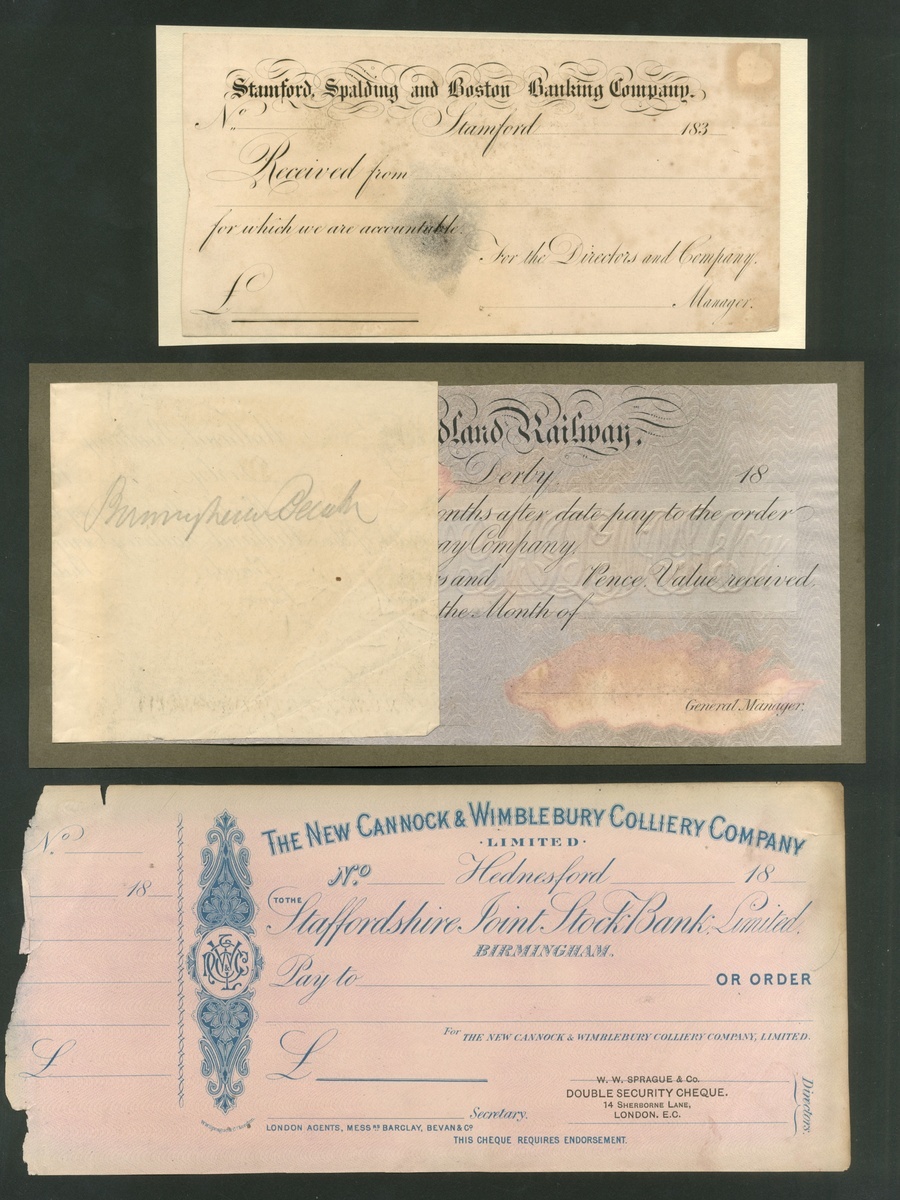 Stamford, Spalding and Boston Banking Company.
No. Stamford 183
Received from
for which we are accountable.
For the Directors and Company.
£ Manager.
dland Railway.
Derby 18
onths after date pay to the order
ay Company.
s and Pence, Value received.
the Month of
General Manager.
Birmingham
THE NEW CANNOCK & WIMBLEBURY COLLIERY COMPANY
·LIMITED·
No
No Hednesford 18
18
TO THE
Staffordshire Joint Stock Bank, Limited,
BIRMINGHAM.
Pay to OR ORDER
For THE NEW CANNOCK & WIMBLEBURY COLLIERY COMPANY, LIMITED.
£
£
W. W. SPRAGUE & Co.
DOUBLE SECURITY CHEQUE.
14 SHERBORNE LANE,
LONDON. E.C.
Directors.
Secretary.
LONDON AGENTS, MESSRS BARCLAY, BEVAN & Co
THIS CHEQUE REQUIRES ENDORSEMENT.